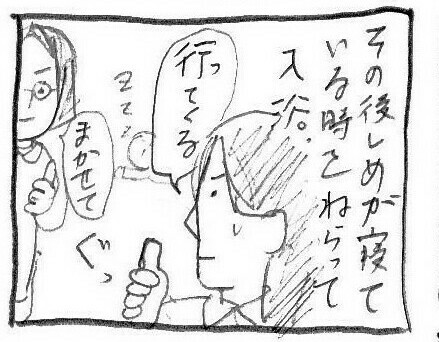 その後しめが寝て
いる時をねらって
入浴。
行ってくる
スヤスヤ
まかせて
ぐっ